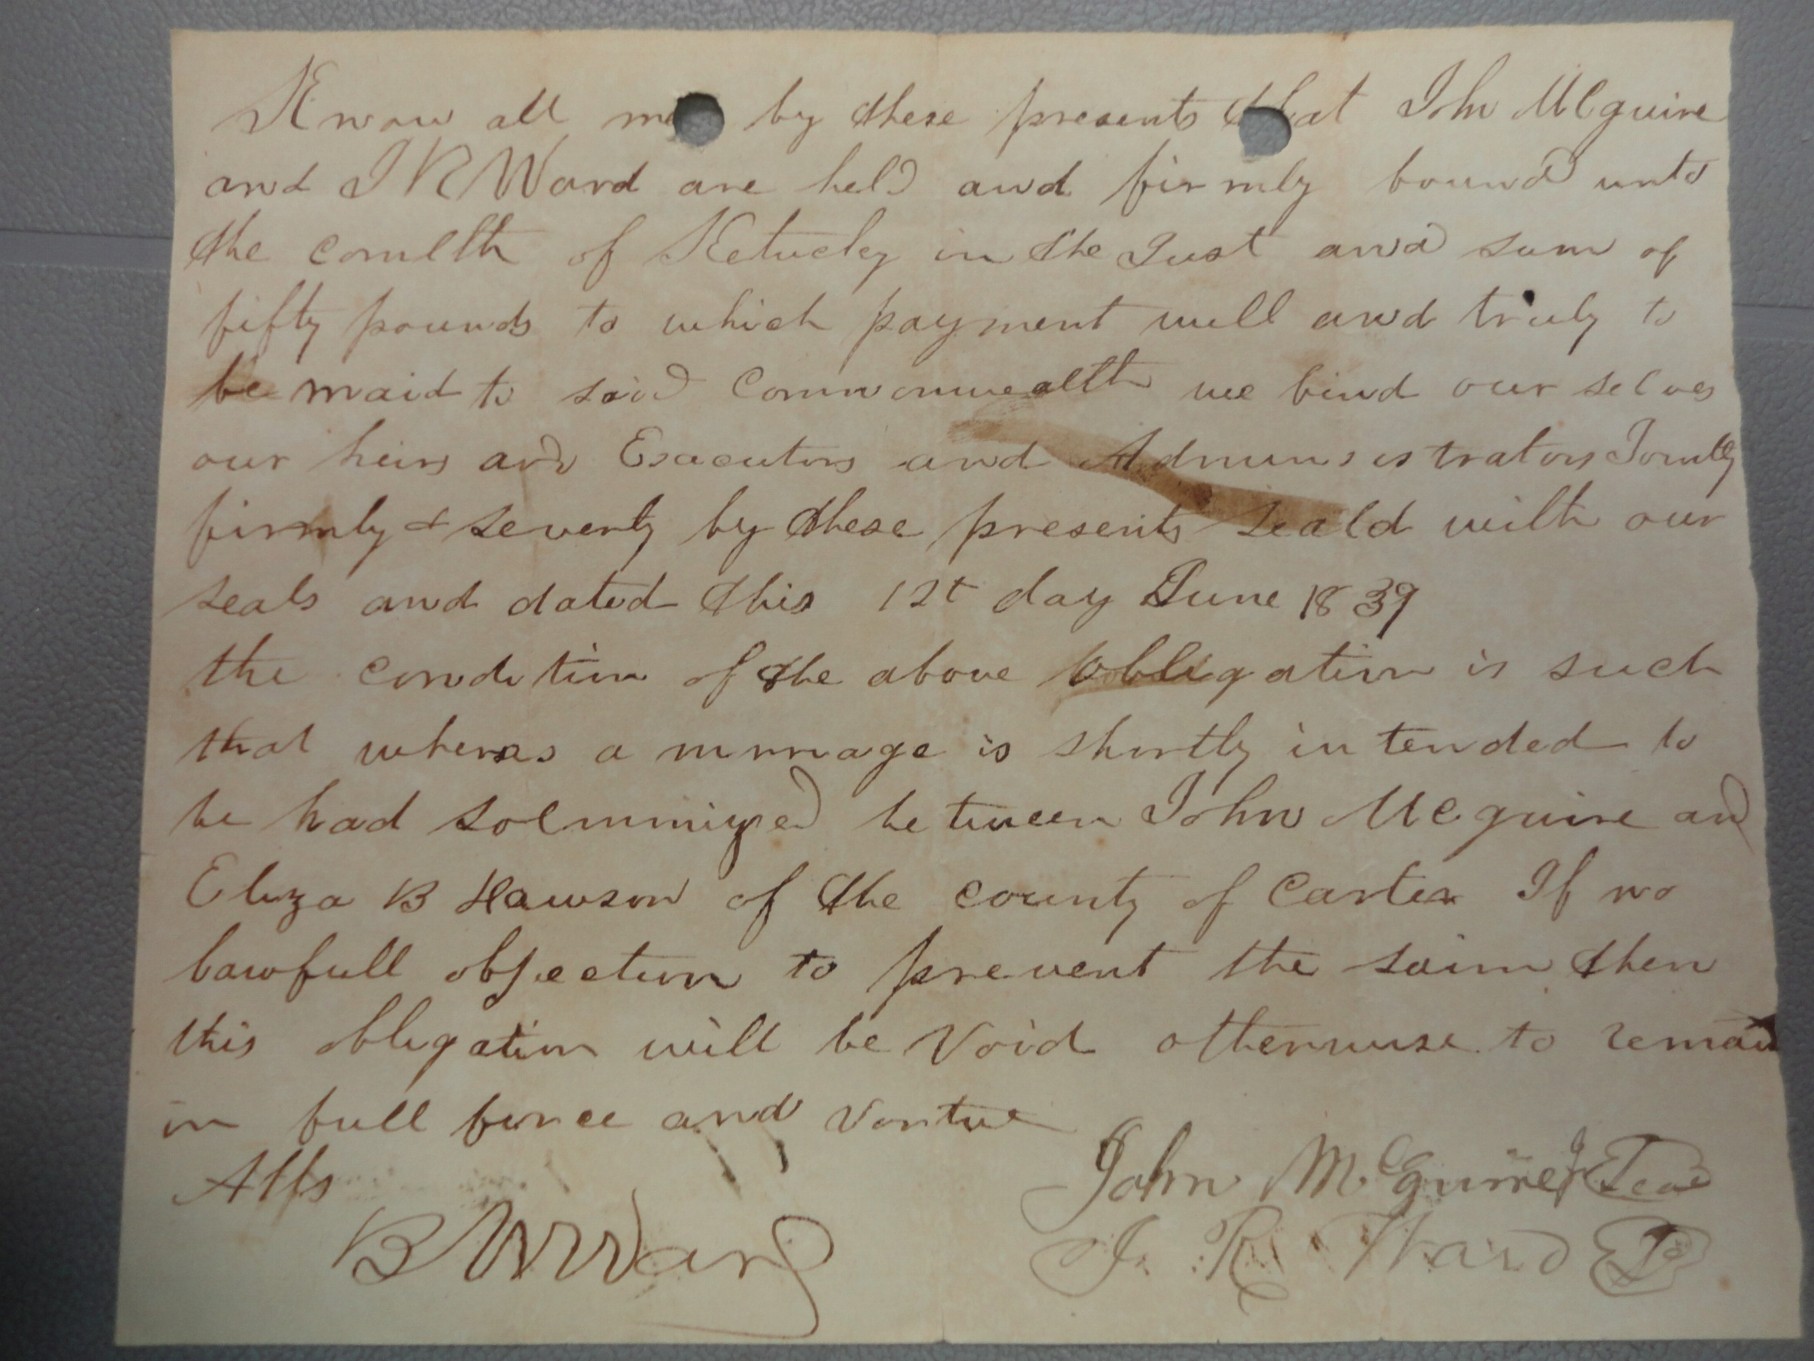 Know all me by these presents that John McGuire
and J R Ward are held and firmly bound unto
the comlth of Ketucky in the Just and sum of
fifty pounds to which payment well and truly to
be maid to said Commonwealth we bind our selves
our heirs and Executors and Adminisistrators Jointly
firmly & severly by these presents seald with our
seals and dated this 12t day June 1839
the condition of the above obligation is such
that wheras a mrriage is shortly intended to
be had solemnized between John McGuire and
Eliza B Hawson of the county of Carter If no
lawfull objection to prevent the saim then
this obligation will be void otherwise to remain
in full force and vortue
Atts
John McGuire Jr Seal
B W Ward
J. R. Ward